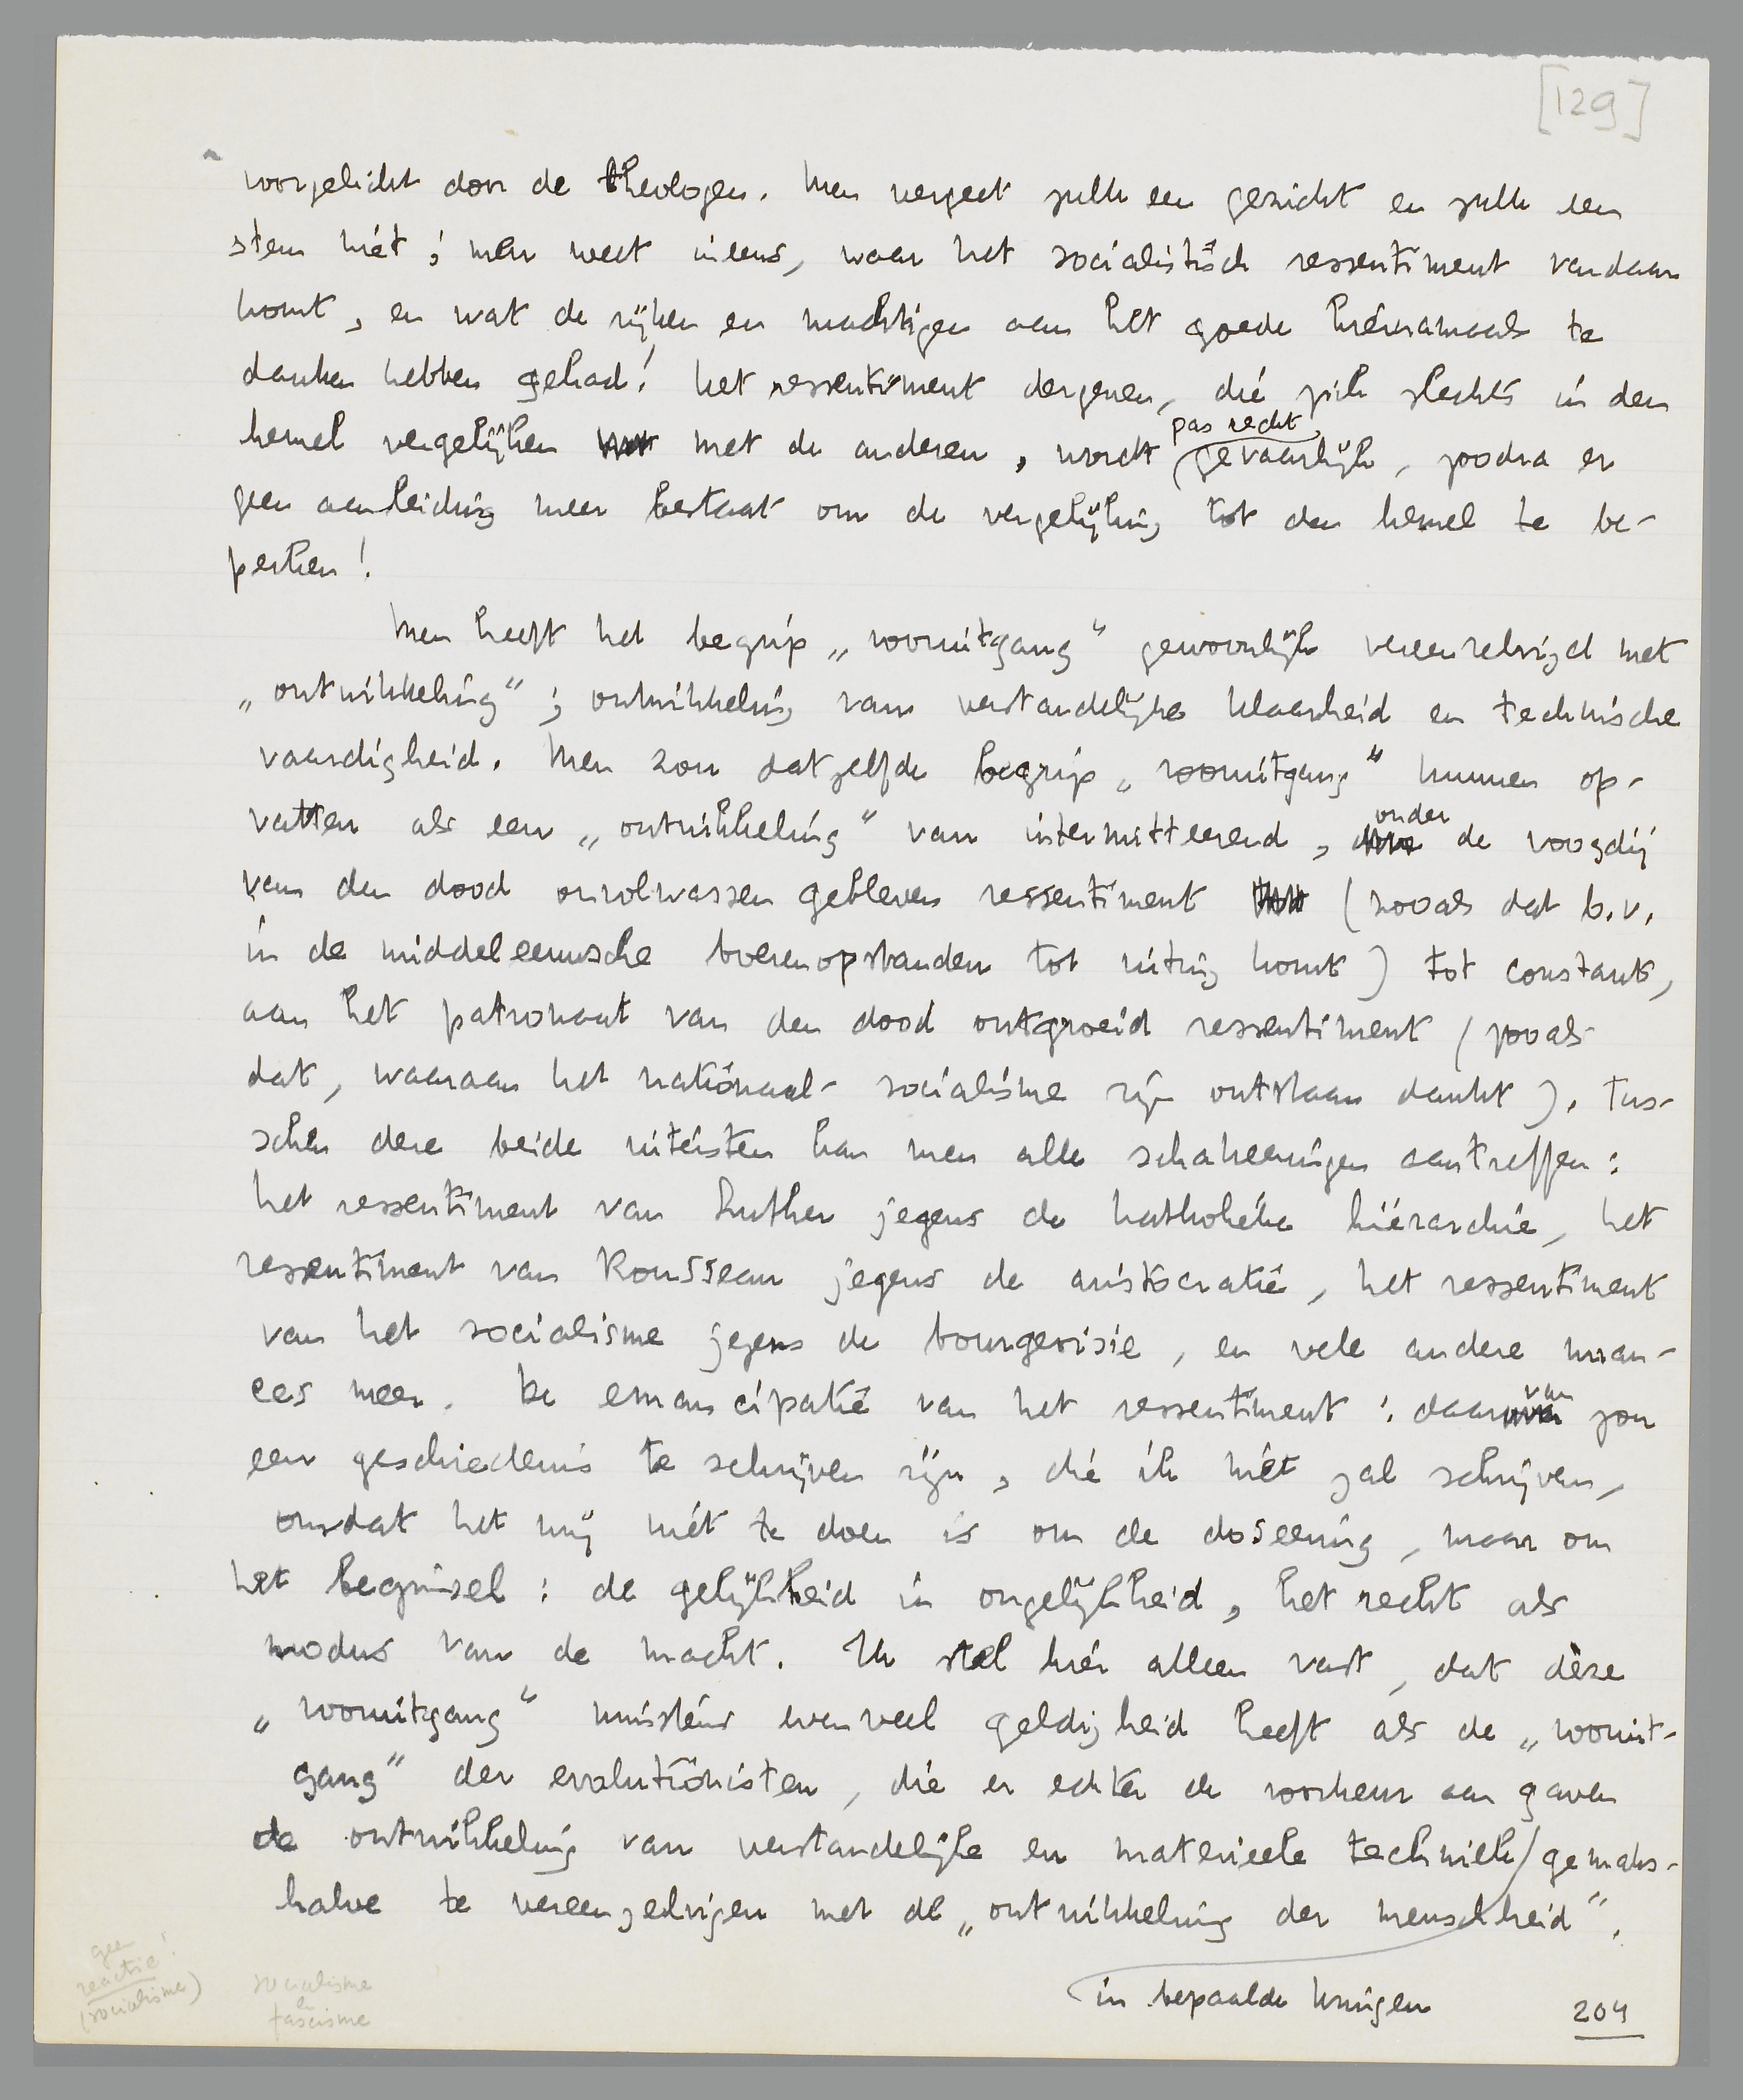 [129]
voorgelicht door de theologen. Men vergeet zulk een gezicht en zulk een
stem niet; men weet ineens, waar het socialistisch ressentiment vandaan
komt, en wat de rijken en machtigen aan het goede hiernamaals te
danken hebben gehad! Het ressentiment dergenen, die zich slechts in den
hemel vergelijken met de anderen, wordt pas recht gevaarlijk, zoodra er
geen aanleiding meer bestaat om de vergelijking tot den hemel te be-
perken!
Men heeft het begrip „vooruitgang" gewoonlijk vereenzelvigd met
„ontwikkeling"; ontwikkeling van verstandelijke klaarheid en technische
vaardigheid. Men zou datzelfde begrip „vooruitgang" kunnen op-
vatten als een „ontwikkeling" van intermitteerend, onder de voogdij
van den dood onvolwassen gebleven ressentiment (zooals dat b.v.
in de middeleeuwsche boerenopstanden tot uiting komt) tot constant,
aan het patronaat van den dood ontgroeid ressentiment (zooals
dat, waaraan het nationaal-socialisme zijn ontstaan dankt). Tus-
schen deze beide uitersten kan men alle schakeeringen aantreffen:
het ressentiment van Luther jegens de katholieke hiërarchie, het
ressentiment van Rousseau jegens de aristocratie, het ressentiment
van het socialisme jegens de bourgeoisie, en vele andere nuan-
ces meer. De emancipatie van het ressentiment: daarvan zou
een geschiedenis te schrijven zijn, die ik niet zal schrijven,
omdat het mij niet te doen is om de doseering, maar om
het beginsel: de gelijkheid in ongelijkheid, het recht als
modus van de macht. Ik stel hier alleen vast, dat déze
„vooruitgang" minstens evenveel geldigheid heeft als de „vooruit-
gang" der evolutionisten, die er echter de voorkeur aan gaven
de ontwikkeling van verstandelijke en materieele techniek / gemaks-
halve te vereenzelvigen met de „ontwikkeling der menschheid".
in bepaalde kringen
204
geen
reactie!
(socialisme)
socialisme
en
fascisme